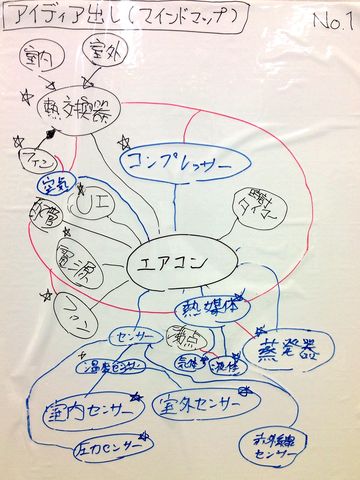 アイディア出し(マインドマップ)
No.1
室内
室外
熱交換器
コンプレッサー
フィン
空気
配管
時計
タイマー
電源
エアコン
ファン
熱媒体
センサー
沸点
蒸発器
気体
液体
温度センサー
室内センサー
室外センサー
圧力センサー
赤外線
センサー